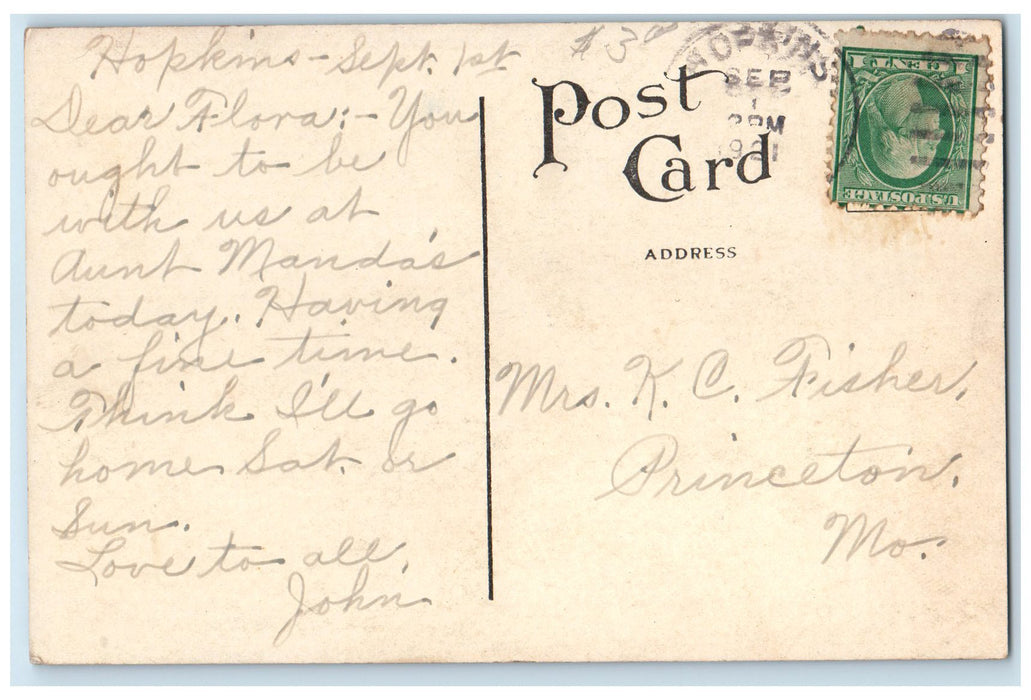 Hopkins - Sept. 1st
Dear Flora:- You
ought to be
with us at
Aunt Manda's
today. Having
a fine time.
Think I'll go
home Sat. or
Sun.
Love to all,
John
$3
Post
Card
ADDRESS
Mrs. K. C. Fisher,
Princeton,
Mo.
HOPKINS
SEP
1
PM
U.S. POSTAGE
1 CENT 1